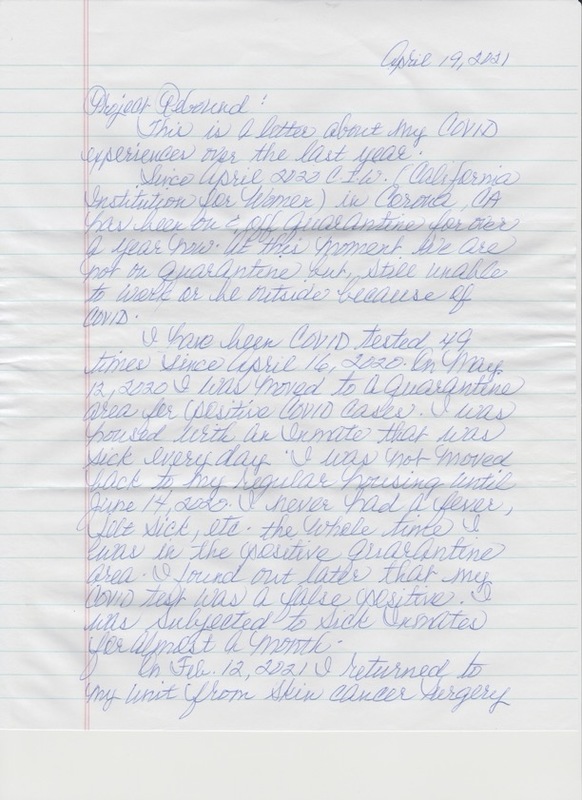 April 19, 2021
Project Rebound:
This is a letter about my COVID
experiences over the last year.
Since April 2020 C.I.W. (California
Institution for Women) in Corona, CA
has been on & off quarantine for over
a year now. At this moment we are
not on quarantine but, still unable
to work or be outside because of
COVID.
I have been COVID tested 49
times since April 16, 2020. On May
12, 2020 I was moved to a quarantine
area for positive COVID cases. I was
housed with an inmate that was
sick every day. I was not moved
back to my regular housing until
June 14, 2020. I never had a fever,
felt sick, etc. the whole time I
was in the positive quarantine
area. I found out later that my
COVID test was a false positive. I
was subjected to sick inmates
for almost a month.
On Feb. 12, 2021 I returned to
my unit from skin cancer surgery